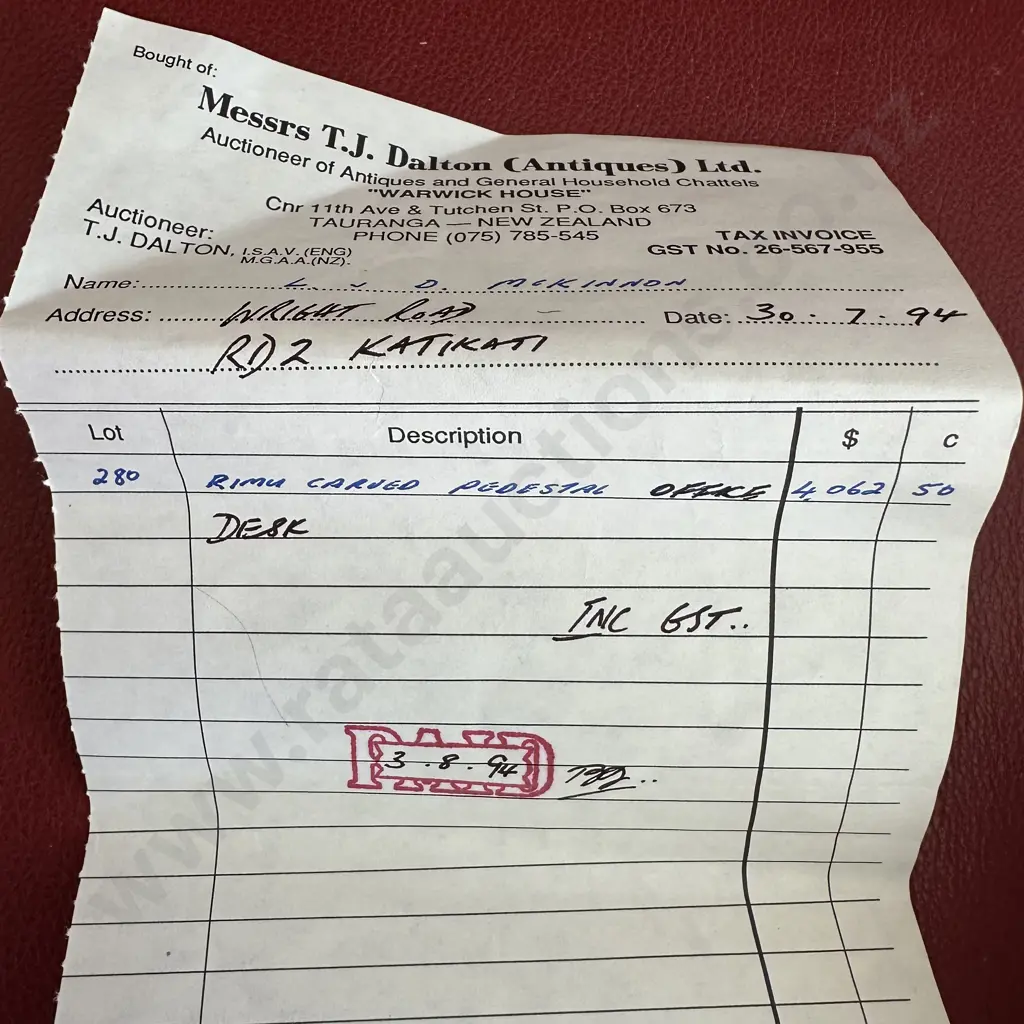 Bought of:
Messrs T.J. Dalton (Antiques) Ltd.
Auctioneer of Antiques and General Household Chattels
"WARWICK HOUSE"
Cnr 11th Ave & Tutchen St. P.O. Box 673
TAURANGA — NEW ZEALAND
PHONE (075) 785-545
Auctioneer:
T.J. DALTON, I.S.A.V.(ENG)
M.G.A.A.(NZ).
TAX INVOICE
GST No. 26-567-955
Name: L J D. McKINNON
Address: WRIGHT ROAD Date: 30.7.94
RD2 KATIKATI
Lot Description $ c
280 RIMU CARVED PEDESTAL OFFICE 4,062 50
DESK
INC GST..
PAID
3.8.94
www.rataauctions.co.nz